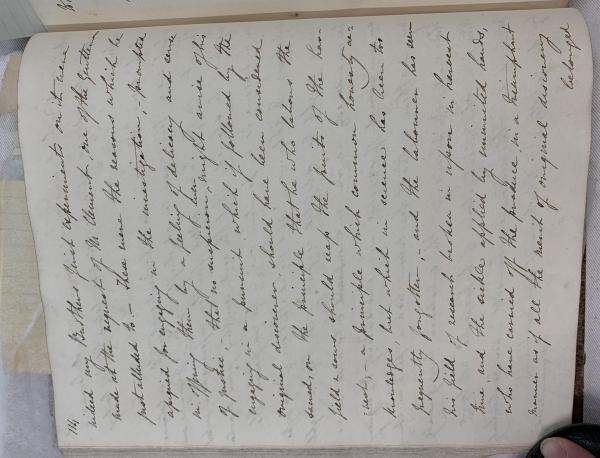 114
my Brother's first experiments on it were
made at the request of M. Clement, one of the Gentlemen
just alluded to. – These were the reasons which he
assigned for engaging in the investigation, – prompted
in offering them by a feeling of delicacy and sense
of justice, – that no suspicion might arise of his
engaging in a pursuit which if followed by the
original discoverer should have been considered
sacred, on the principle that he who labours the
field & sows should reap the fruits of the har-
vest, – a principle which common honesty ac-
knowledges, but which in science has been too
frequently forgotten, – and the labourer has seen
his field of research broken in upon in harvest
time and the sickle applied by uninvited hands,
who have carried off the produce in a triumphant
manner as if all the merit of original discovery
belonged